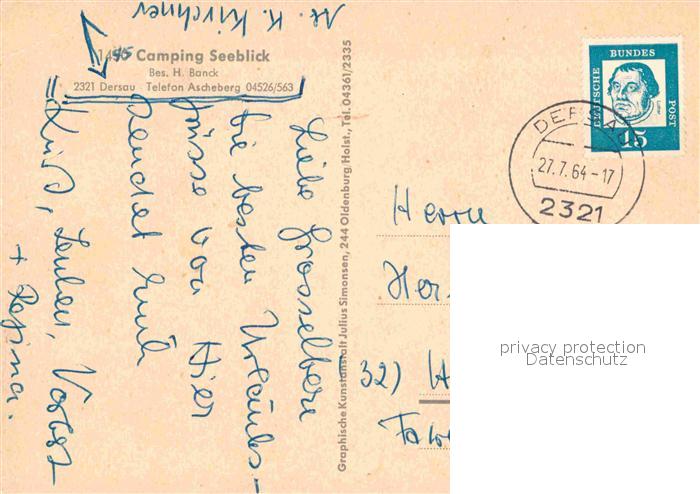 M. K. Kirchner
Camping Seeblick
Bes. H. Banck
2321 Dersau · Telefon Ascheberg 04526/563
Liebe Grosseltern
die besten Urlaubs-
grüsse von Hier
sendet Euch
Kurt,
+ Regina.
Graphische Kunstanstalt Julius Simonsen, 244 Oldenburg/Holst., Tel. 04361/2335
DEUTSCHE
BUNDES
POST
Luther
15
DERSAU
27.7.64-17
2321
Herrn
Her
32)
privacy protection
Datenschutz